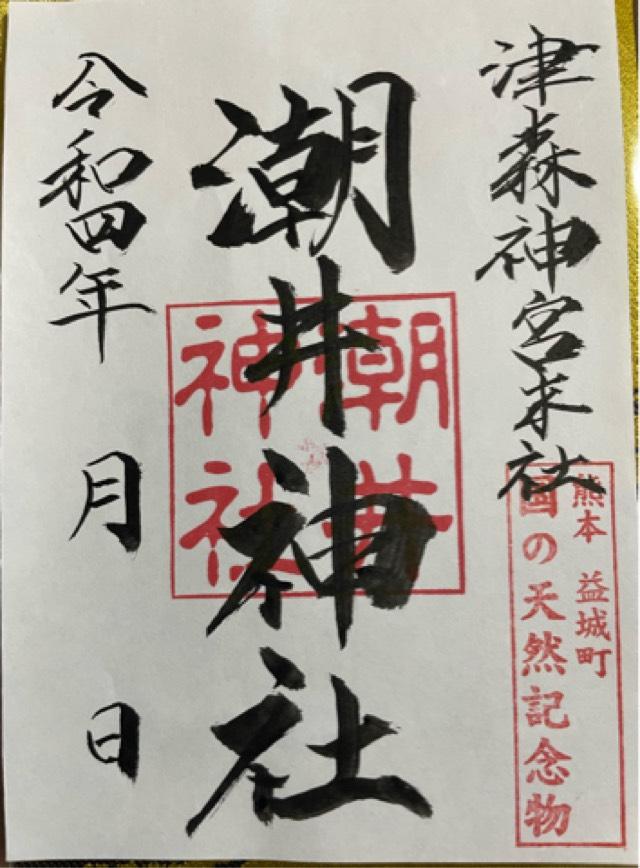 津森神宮末社
熊本 益城町
国の天然記念物
潮井神社
潮井
神社
令和四年 月 日